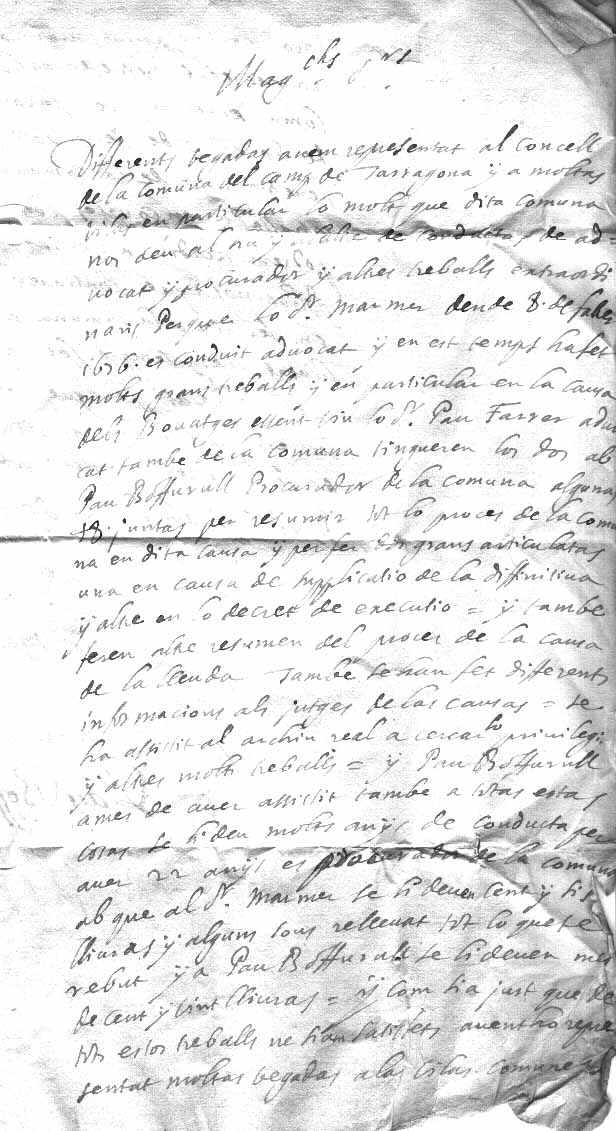 Mag chs
Differents vegadas avem representat al concell
de la Comuna del camp de Tarragona y a moltas
vilas en particular lo molt que dita comuna
nos deu al y de conductas de ad=
vocat y procurador y altres treballs extraordi
naris Perque lo Sr. Marmer dende 8. de
1676. es conduit advocat y en est temps ha fet
molts grans treballs y en particular en la causa
dels Bovatges essent lo Dr. Pau Farrer advo
cat tambe de la comuna tingueren los dos ab
Pau Boffurull Procurador de la comuna algunas
18. juntas per resumir tot lo proces de la comu
na en dita causa y per fer dos grans articulatas
una en causa de supplicatio de la diffinitiva
y altre en lo decret de executio = y tambe
feren altre resumen del proces de la causa
de la lleuda Tambe se han fet differents
informacions als jutges de las causas = se
ha assistit al archiu real a cercar lo privilegi
y altres molts treballs = y Pau Boffurull
ames de aver assistit tambe a totas estas
cosas se li deu molts anys de conducta per
aver 22 anys es procurador de la comuna
ab que al Dr. Marmer se li deuen cent y sis
lliuras y alguns sous rellevat tot lo que se
rebut y a Pau Boffurull se li deuen mes
de cent y vint lliuras = y com sia just que de
tots estos treballs ne siam satisfets avent ho repre
sentat moltas vegadas a las vilas comunes